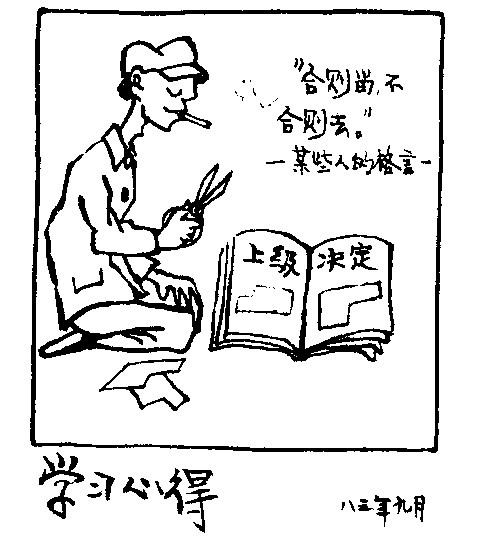 "合则留,不
合则去。"
—某些人的格言—
上级 决定
学习心得
八三年九月